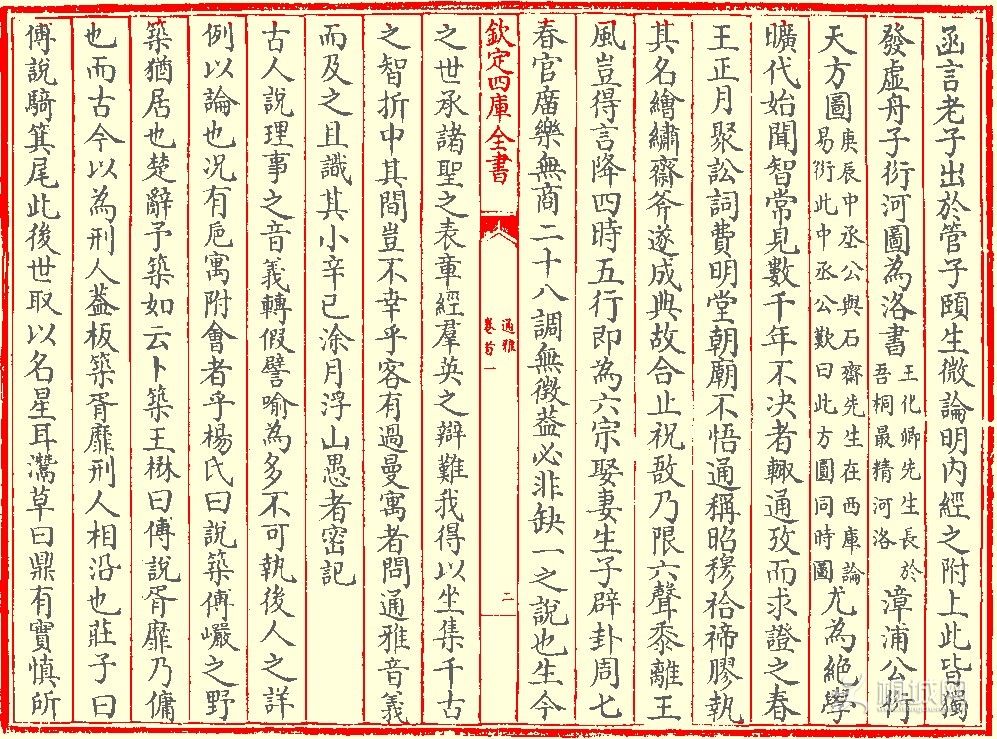 函言老子出於管子頤生微論明內經之附上此皆獨
發虛舟子衍河圖為洛書王化卿先生長於吾桐最精河洛漳浦公衍
天方圖庚辰中丞公與石齋先生在西庫論易衍此中丞公歎曰此方圓同時圖尤為絶學
曠代始聞智常見數千年不决者輙通攷而求證之春
王正月聚訟詞費明堂朝廟不悟通稱昭穆祫禘膠執
其名繪繡齋斧遂成典故合止祝敔乃限六聲黍離王
風豈得言降四時五行即為六宗娶妻生子辟卦周七
春官廣樂無商二十八調無徵葢必非缺一之說也生今
欽定四庫全書
通雅
卷首一
二
之世承諸聖之表章經羣英之辯難我得以坐集千古
之智折中其間豈不幸乎客有過曼寓者問通雅音義
而及之且識其小辛巳涂月浮山愚者密記
古人說理事之音義轉假譬喻為多不可執後人之詳
例以論也况有巵寓附會者乎楊氏曰說築傅巖之野
築猶居也楚辭予築如云卜築王楙曰傅說胥靡乃傭
也而古今以為刑人葢板築胥靡刑人相沿也莊子曰
傅說騎箕尾此後世取以名星耳鷰草曰鼎有實慎所